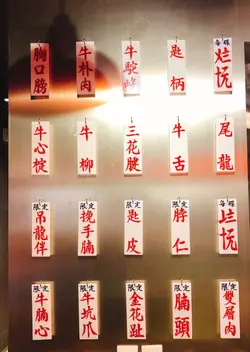 胸口朥
牛朴肉
牛駝峰
匙柄
牛心椗
牛柳
三花腱
牛舌
尾龍
限定
吊龍伴
限定
挽手腩
限定
匙皮
限定
脖仁
限定
牛腩心
限定
牛坑爪
限定
金花趾
限定
腩頭
限定
雙層肉